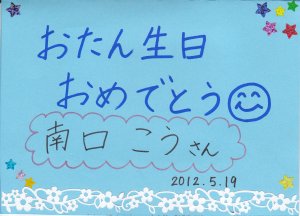 おたん生日
おめでとう
南口 こうさん
2012.5.19